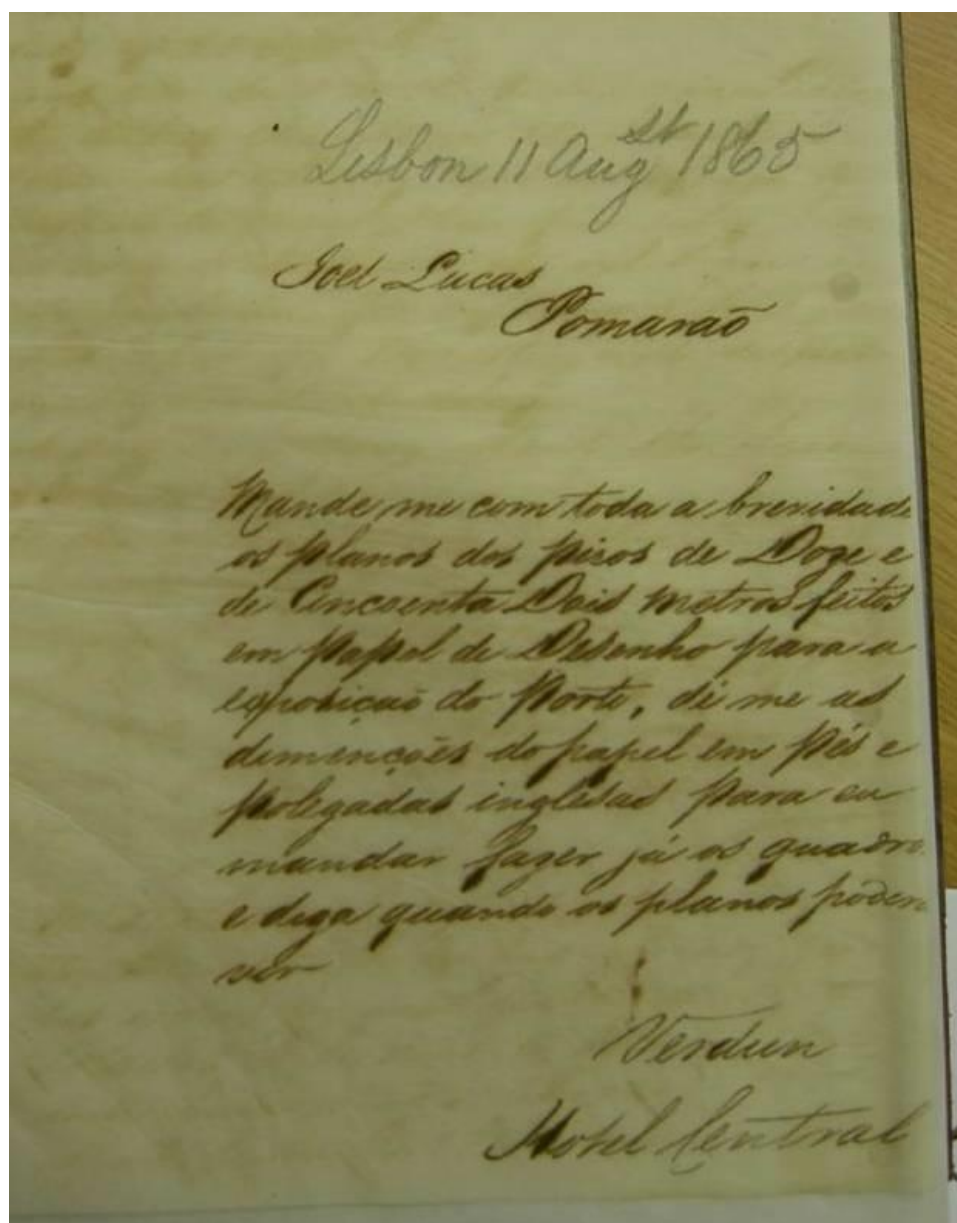 Lisbon 11 Augst 1865
Joel Lucas
Pomarão
Mande me com toda a brevidade
os planos dos pisos de Doze e
de Cincoenta Dois metros feitos
em papel de Desenho para a
exposição do Porto, dê me as
dimenções do papel em pés e
polegadas inglesas para eu
mandar fazer já os quadro
e diga quando os planos podem
ser
Verdun
Hotel Central